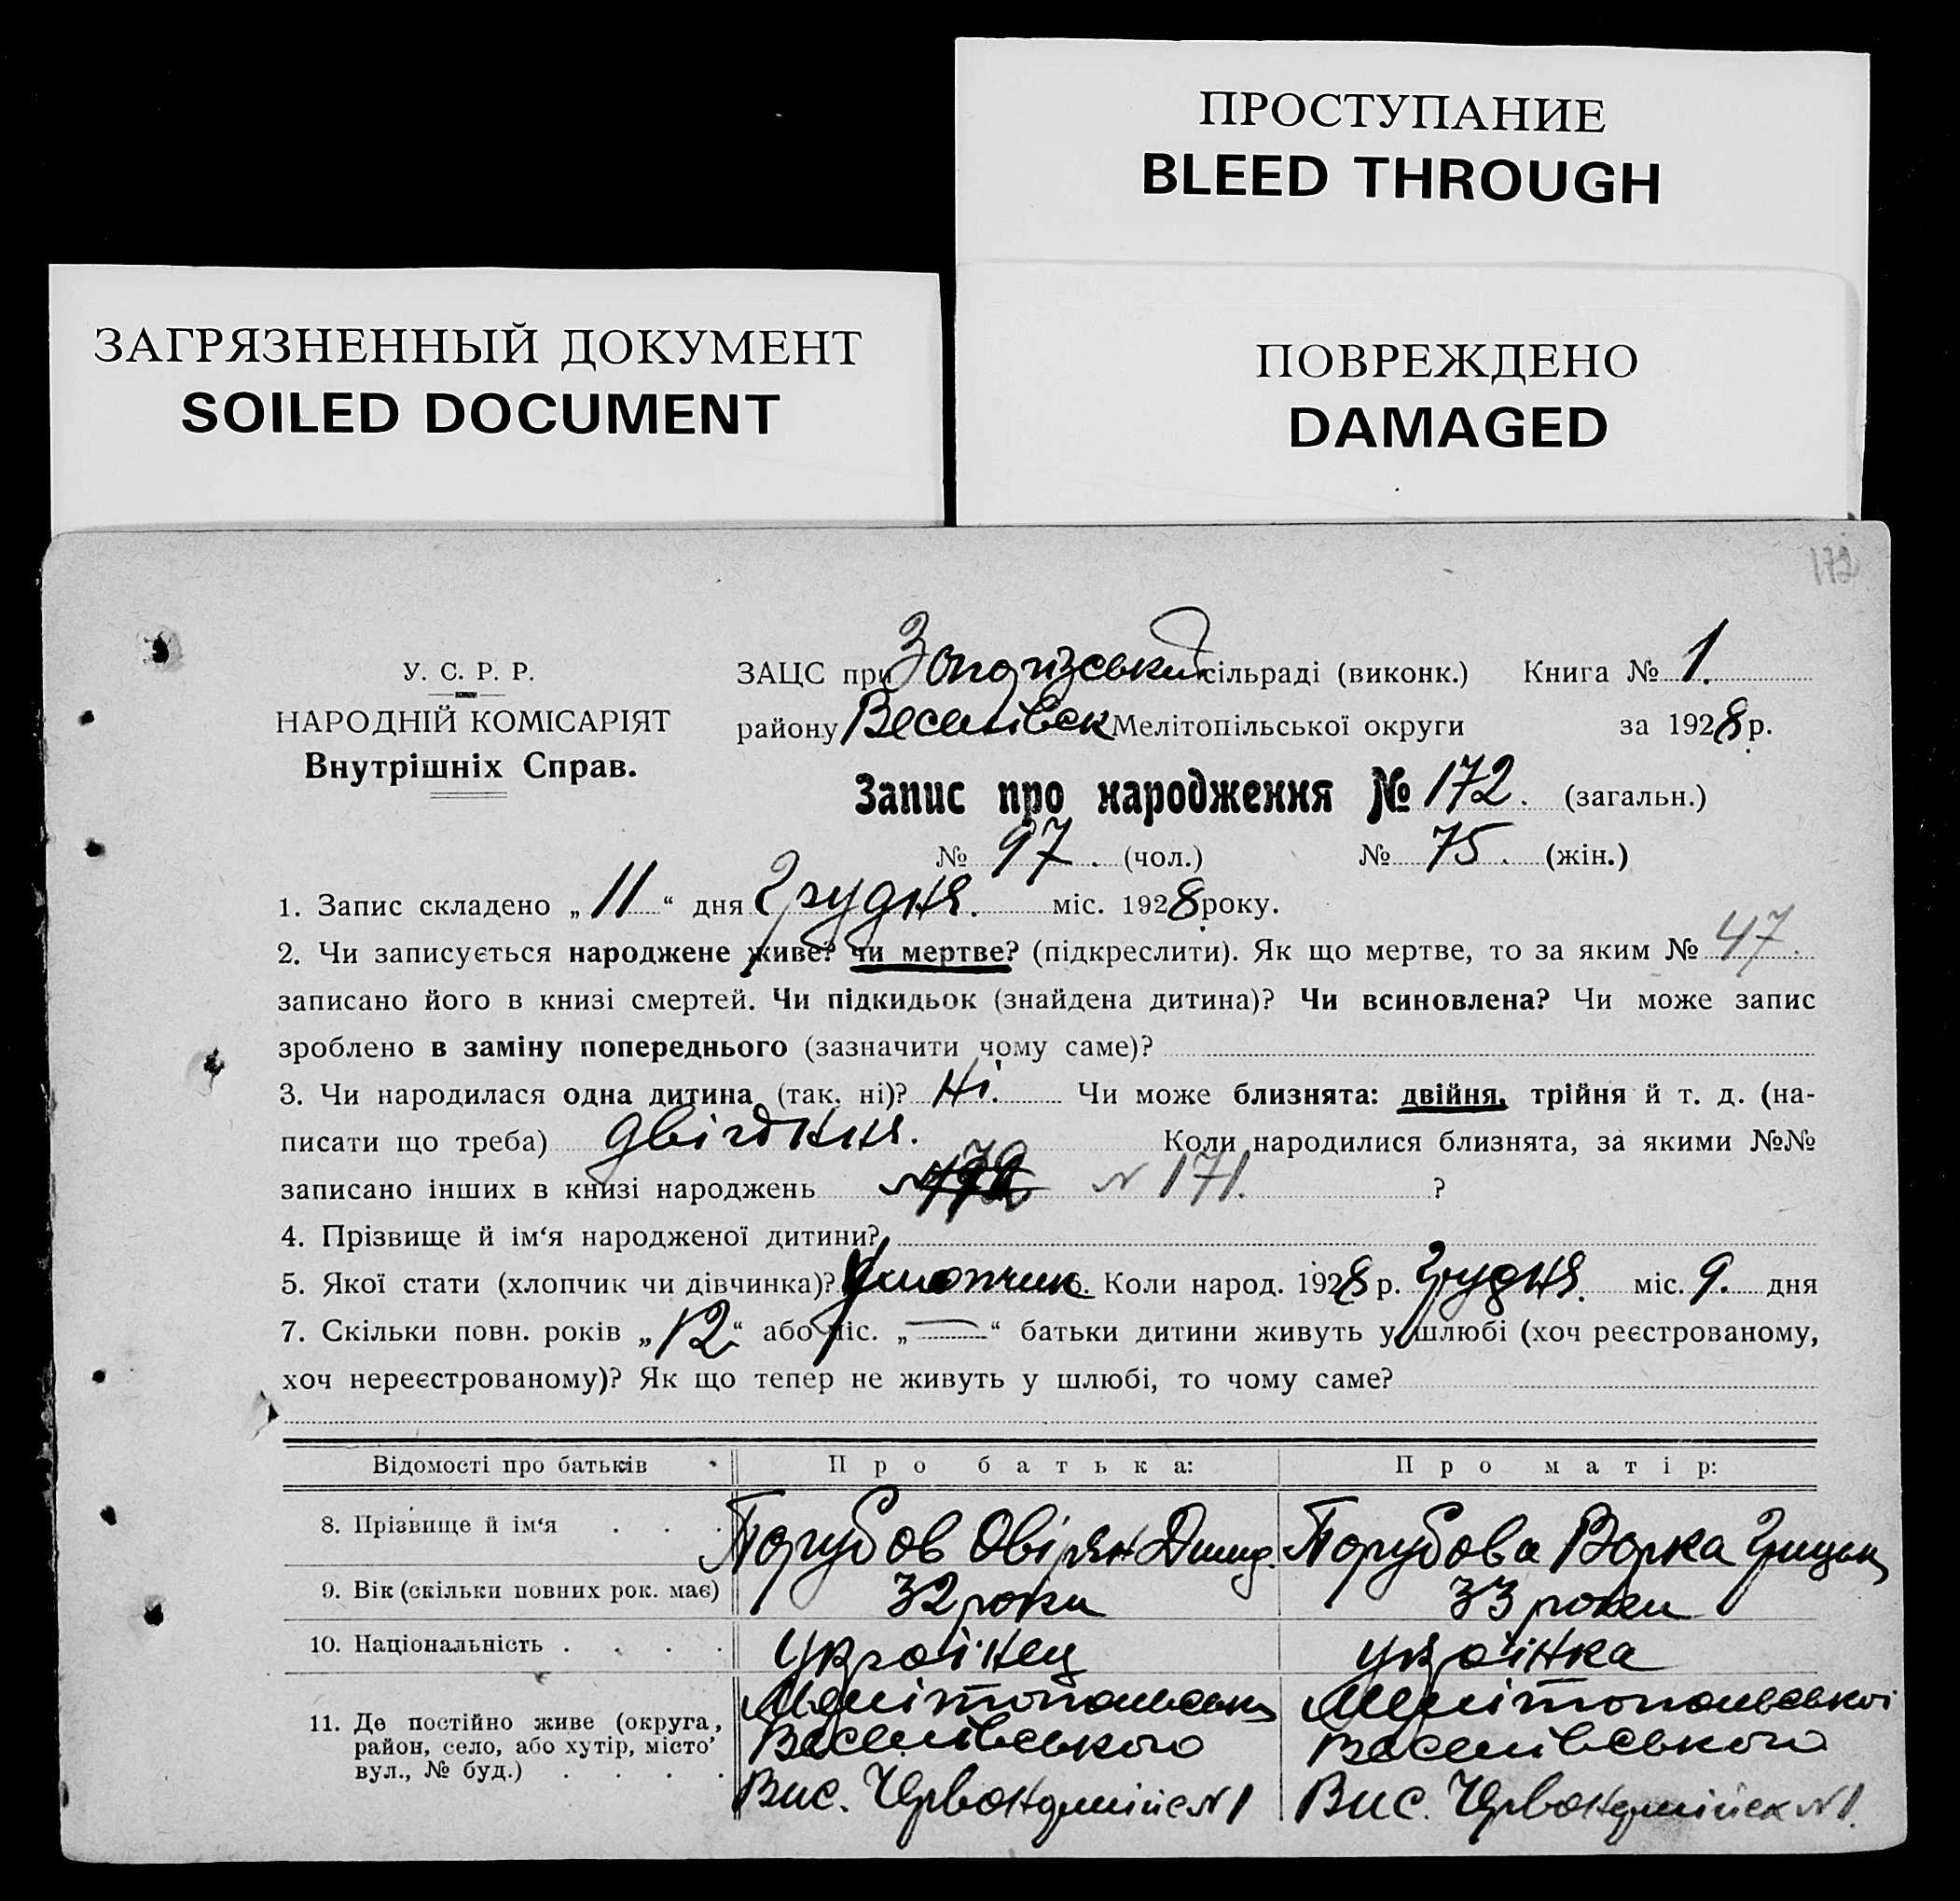 ПРОСТУПАНИЕ
BLEED THROUGH
ЗАГРЯЗНЕННЫЙ ДОКУМЕНТ
SOILED DOCUMENT
ПОВРЕЖДЕНО
DAMAGED
172
У. С. Р. Р.
НАРОДНІЙ КОМІСАРІЯТ
Внутрішніх Справ.
ЗАЦС при сільраді (виконк.) Книга № 1.
району Веселівськ Мелітопільської округи за 1928 р.
Запис про народження № 172. (загальн.)
№ 97. (чол.) № 75. (жін.)
1. Запис складено „11“ дня Грудня. міс. 1928 року.
2. Чи записується народжене живе? чи мертве? (підкреслити). Як що мертве, то за яким № 47.
записано його в книзі смертей. Чи підкидьок (знайдена дитина)? Чи всиновлена? Чи може запис
зроблено в заміну попереднього (зазначити чому саме)?
3. Чи народилася одна дитина (так, ні)? Ні. Чи може близнята: двійня, трійня й т. д. (на-
писати що треба) Коли народилися близнята, за якими №№
записано інших в книзі народжень N 171. ?
4. Прізвище й ім‘я народженої дитини?
5. Якої стати (хлопчик чи дівчинка)? хлопчик 6. Коли народ. 1928 р. Грудня. міс. 9. дня
7. Скільки повн. років „12“ або міс. „—“ батьки дитини живуть у шлюбі (хоч реєстрованому,
хоч нереєстрованому)? Як що тепер не живуть у шлюбі, то чому саме?
Відомості про батьків Про батька: Про матір:
8. Прізвище й ім‘я . . . Порубов Овірян Порубова Варка
9. Вік (скільки повних рок. має) 32 роки 33 роки
10. Національність . . . . Українец Українка
11. Де постійно живе (округа, район, село, або хутір, місто’ вул., № буд.) . . . .
Мелітопольськ Мелітопольської
Веселівського Веселівського
Вис. N 1 Вис. N 1.